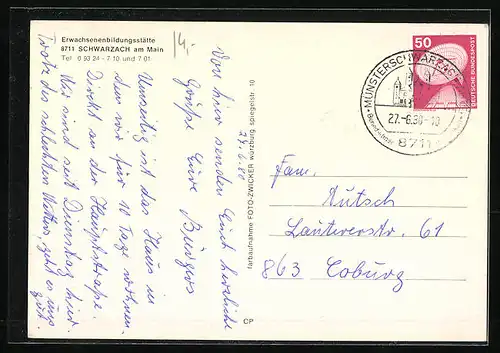 Erwachsenenbildungsstätte
8711 SCHWARZACH am Main
Tel 0 93 24 - 7 10 und 7 01
14,-
Von hier senden Euch herzliche
Grüße Eure Burgers
27.6.80
Umseitig ist das Haus in
dem wir für 10 Tage wohnen.
Direkt an der Hauptstrasse.
Wir sind seit Dienstag hier.
Trotz des schlechten Wetters, geht es uns
gut.
farbaufnahme FOTO-ZWICKER würzburg spiegelstr 10
CP
50
DEUTSCHE BUNDESPOST
MÜNSTERSCHWARZACH
27.-6.80-18
8711
Fam.
Autsch
Lautererstr. 61
863 Coburg